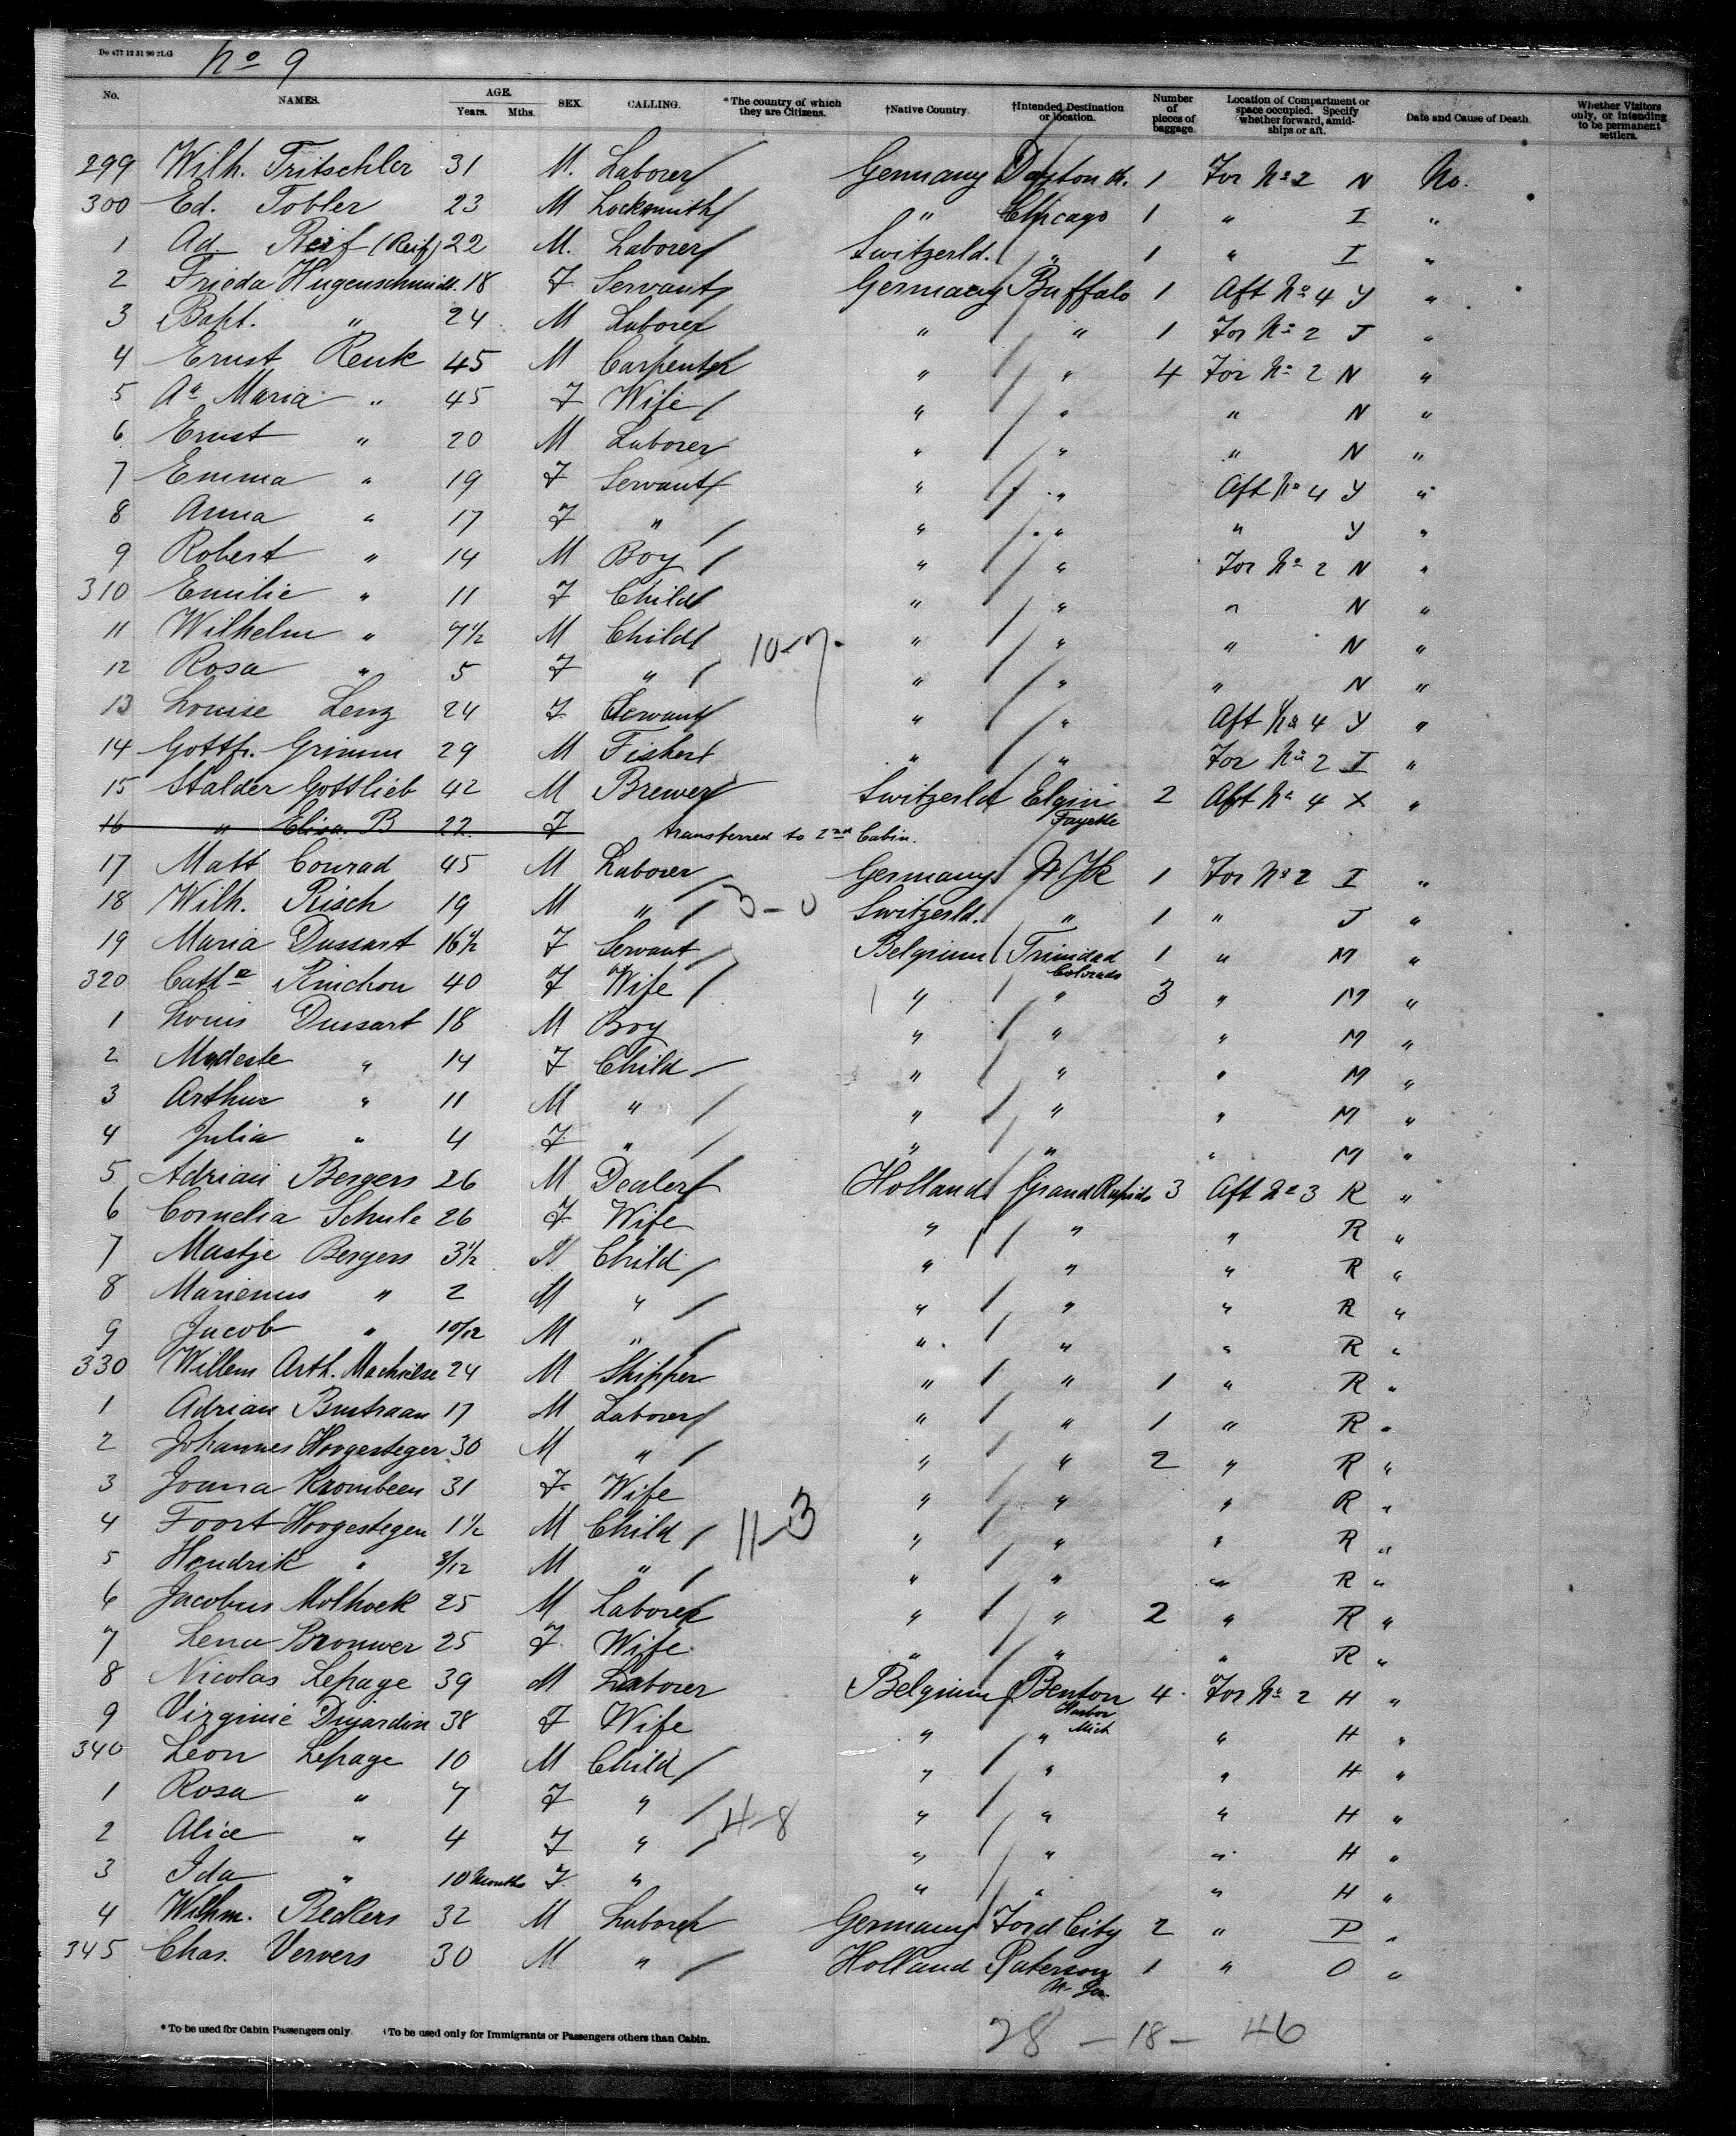 De 477 12 31 90 2LG
No 9
No. NAMES. AGE. Years. Mths. SEX. CALLING. *The country of which they are Citizens. †Native Country. †Intended Destination or location. Number of pieces of baggage. Location of Compartment or space occupied. Specify whether forward, amidships or aft. Date and Cause of Death. Whether Visitors only, or intending to be permanent settlers.
299 Wilh. Tritschler 31 M. Laborer Germany Dayton 1 For No 2 N No.
300 Ed. Tobler 23 M Locksmith " Chicago 1 " I "
1 Ad Reif (Reif) 22 M. Laborer Switzerld. " 1 " I "
2 Frieda Hugenschmidt 18 F Servant Germany Buffalo 1 Aft No 4 Y "
3 Bapt. " 24 M Laborer " " 1 For No 2 J "
4 Ernst Renk 45 M Carpenter " " 4 For No 2 N "
5 Aa Maria " 45 F Wife " " " N "
6 Ernst " 20 M Laborer " " " N "
7 Emma " 19 F Servant " " Aft No 4 Y "
8 Anna " 17 F " " " " Y "
9 Robert " 14 M Boy " " For No 2 N "
310 Emilie " 11 F Child " " " N "
11 Wilhelm " 7 1/2 M Child 10-7- " " " N "
12 Rosa " 5 F " " " " N "
13 Louise Lenz 24 F Servant " " Aft No 4 Y "
14 Gottfr. Grimm 29 M Fisher " " For No 2 I "
15 Stalder Gottlieb 42 M Brewer Switzerld Elgin Fayette 2 Aft No 4 X "
16 " Elisa. B 22 F transferred to 2nd Cabin.
17 Matt Conrad 45 M Laborer Germany N Yk 1 For No 2 I "
18 Wilh. Risch 19 M " 3-0 Switzerld. " 1 " J "
19 Maria Dussart 16 1/2 F Servant Belgium Trinidad Colorado 1 " M "
320 Catha Rinchon 40 F Wife " " 3 " M "
1 Louis Dussart 18 M Boy " " " M "
2 Modeste " 14 F Child " " " M "
3 Arthur " 11 M " " " " M "
4 Julia " 4 F " " " " M "
5 Adrian Bergers 26 M Dealer Holland Grand Rapids 3 Aft No 3 R "
6 Cornelia Schule 26 F Wife " " " R "
7 Mastje Bergers 3 1/2 Child " " " R "
8 Marienus " 2 M " " " " R "
9 Jacob " 10/12 M " " " " R "
330 Willem Arth. Machielse 24 M Shipper " " 1 " R "
1 Adrian Bustraan 17 M Laborer " " 1 " R "
2 Johannes Hoogesteger 30 M " " " 2 " R "
3 Joana Krombeen 31 F Wife " " " R "
4 Foort Hoogestegen 1 1/2 M Child 11-3 " " " R "
5 Hendrik " 3/12 M " " " " R "
6 Jacobus Molhoek 25 M Laborer " " 2 " R "
7 Lena Brouwer 25 F Wife " " " R "
8 Nicolas Lepage 39 M Laborer Belgium Benton Harbor Mich 4 For No 2 H "
9 Virginie Dujardin 38 F Wife " " " H "
340 Leon Lepage 10 M Child " " " H "
1 Rosa " 7 F " 4-8 " " " H "
2 Alice " 4 F " " " " H "
3 Ida " 10 Months F " " " " H "
4 Wilhm. Bedlers 32 M Laborer Germany Ford City 2 " P "
345 Chas. Ververs 30 M " Holland Paterson 1 " O "
* To be used for Cabin Passengers only. † To be used only for Immigrants or Passengers others than Cabin.
28 - 18 - 46